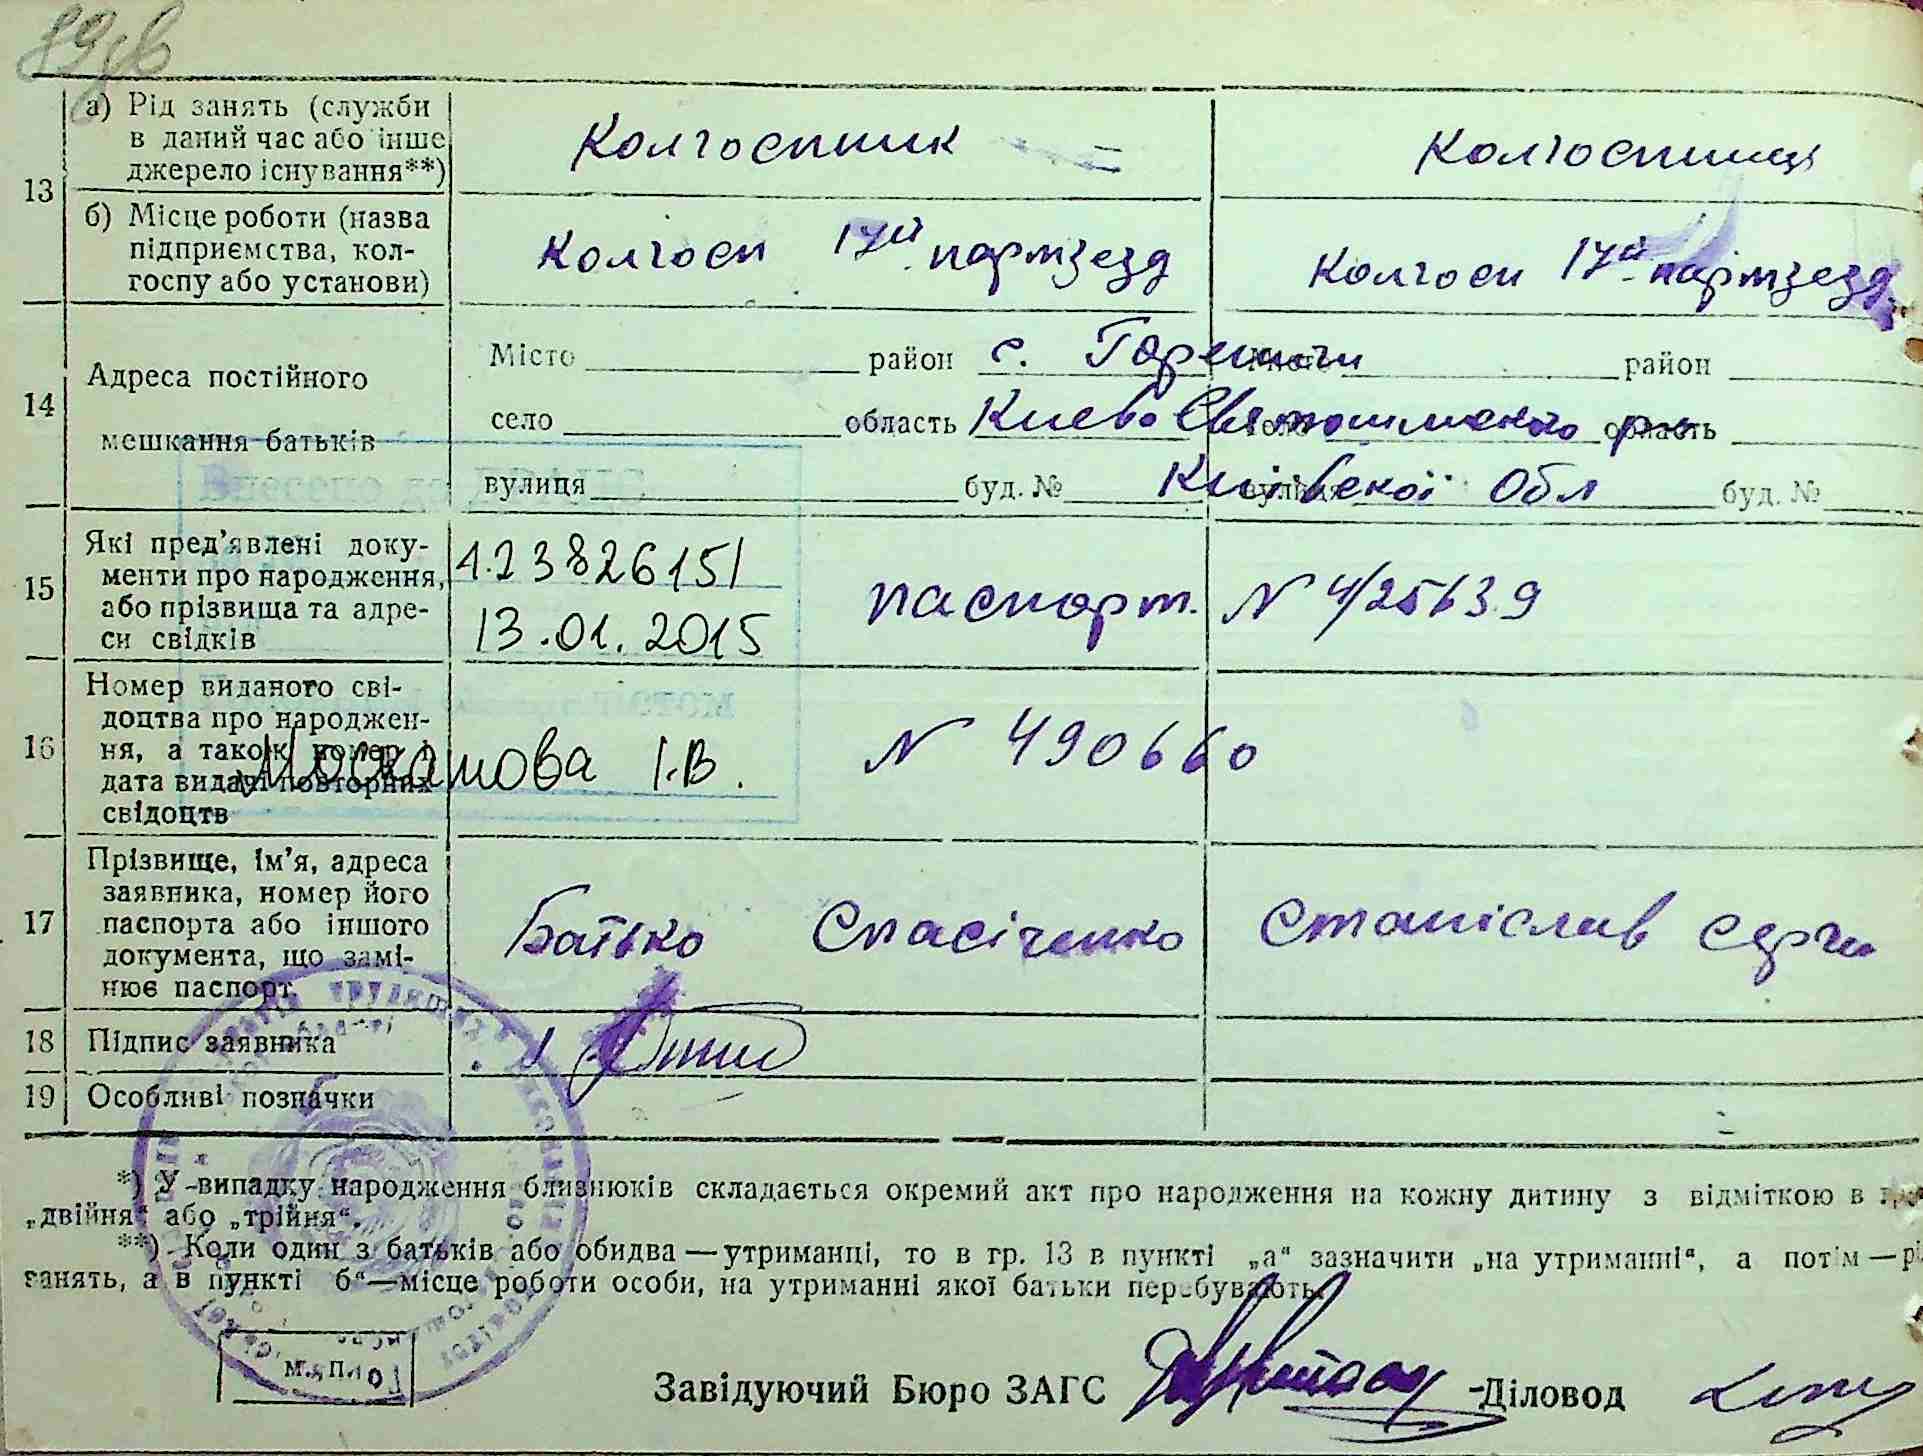 89 дв
а) Рід занять (служби
в даний час або інше
джерело існування**)
Колгоспник
Колгоспниці
13
б) Місце роботи (назва
підприємства, кол-
госпу або установи)
Колгосп 17й партзезд
Колгосп 17й партзезд
14
Адреса постійного
мешкання батьків
Місто район с. Гореничи район
село область Києво Святошинского р-н область
вулиця буд. № Київської Обл буд. №
15
Які пред'явлені доку-
менти про народження,
або прізвища та адре-
си свідків
1.23826151
13.01.2015
паспорт. N 4/25639
16
Номер виданого сві-
доцтва про народжен-
ня, а також номер і
дата видачі повторних
свідоцтв
І.В.
N 490660
17
Прізвище, ім'я, адреса
заявника, номер його
паспорта або іншого
документа, що замі-
нює паспорт
Батько Спасіченко Станіслав
18 Підпис заявника
19 Особливі позначки
*) У випадку народження близнюків складається окремий акт про народження на кожну дитину з відміткою в
„двійня“ або „трійня“.
**) Коли один з батьків або обидва — утриманці, то в гр. 13 в пункті „а“ зазначити „на утриманні“, а потім — рі
занять, а в пункті б“—місце роботи особи, на утриманні якої батьки перебувають.
М. П.
Завідуючий Бюро ЗАГС Діловод